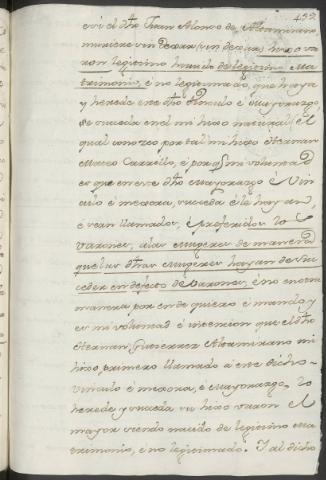 459
e si el dho Juan Alonso de Altamirano
muriere sin dexar (sin dexar) hixo va
ron lexitimo havido de lexitimo Ma
trimonio, é no lexitimado, que haya
y herede este dho Vinculo é Mayorazgo,
se suceda en el mi hixo natural (el
qual conozco por tal mi hixo Hernan
Mateo Carrillo, é porq. mi voluntad
es que en este dho Mayorazgo é Vin
culo é mexora, suceda é lo hayan,
é sean llamados, é preferidos lo
varones, a las mugeres de manera
que las dhas Mugeres hayan de su
ceder en defecto de varones, é no en otra
manera por ende quiero é mando, y
es mi voluntad é intencion que el dho
Hernan Gutierrez Altamirano mi
hixo primero llamado á este dicho
vinculo é mexora, é Mayorazgo, lo
herede y suceda su hixo varon el
mayor siendo nacido de lexitimo Ma
trimonio, é no lexitimado. Y al dicho